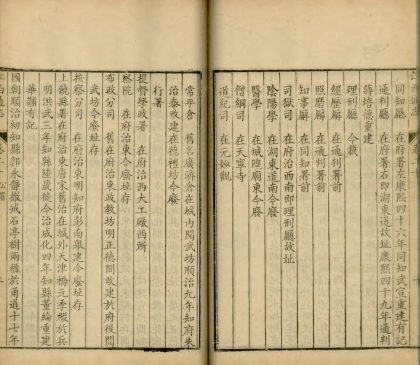 同知廳　在府署左康熙四十六年同知武宣重建有記
通判廳　在府署右即湖東道故址康熙四十九年通判
蔣培德重建
理刑廳　今裁
經歷廨　在通判署前
照磨廨　在通判署前
知事廨　在同知署前
司獄司　在府治西南即理刑廳故址
陰陽學　在湖東道南今廢
醫學　在城隍廟東今廢
僧綱司　在天寧寺
道紀司　在元妙觀
常平倉　舊名廣濟倉在城內閱武坊順治九年知府朱
治泰改建在德禮坊今廢
行署
提督學政署　在府治西大工廠西所
察院　在府治東今廢址存
布政分司　舊在府治東政教坊明正德間改建於府後閱
武坊今廢址存
按察分司　在府治東明知府彭南臯建今廢址存
上饒縣署在府治東唐宋舊治在城外天津橋元季燬於兵
明洪武三年知縣陸晟徙今治成化四年知縣董綸重建
華黼有記
國朝順治初知縣郭永靜撤戒石亭樹兩榜於甬道十七年